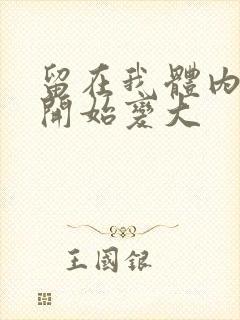 留在我體內
開始變大
王國銀